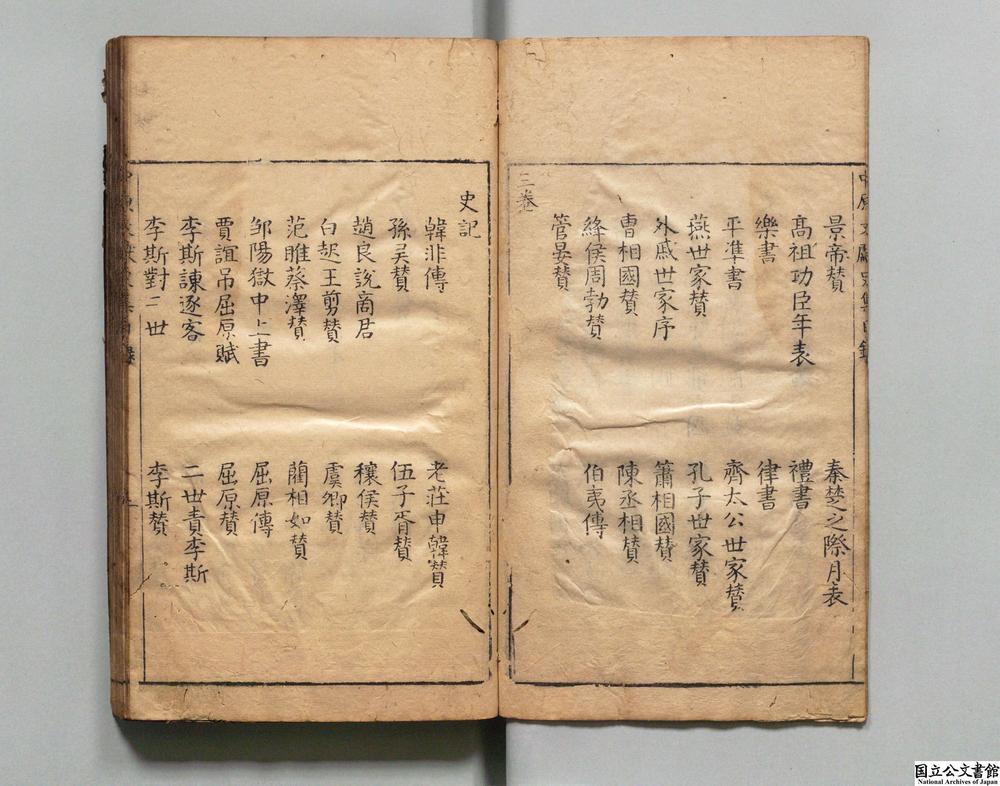 景帝賛 秦楚之際月表
高祖功臣年表 禮書
樂書 律書
平準書 齊太公世家賛
燕世家賛 孔子世家賛
外戚世家序 蕭相國賛
曹相國賛 陳丞相賛
絳侯周勃賛 伯夷傳
管晏賛
三卷
史記
韓非傳 老莊申韓賛
孫吳賛 伍子胥賛
趙良說商君 穰侯賛
白起王剪賛 虞卿賛
范睢蔡澤賛 藺相如賛
鄒陽獄中上書 屈原傳
賈誼吊屈原賦 屈原賛
李斯諫逐客 二世責李斯
李斯對二世 李斯賛
国立公文書館
National Archives of Japan